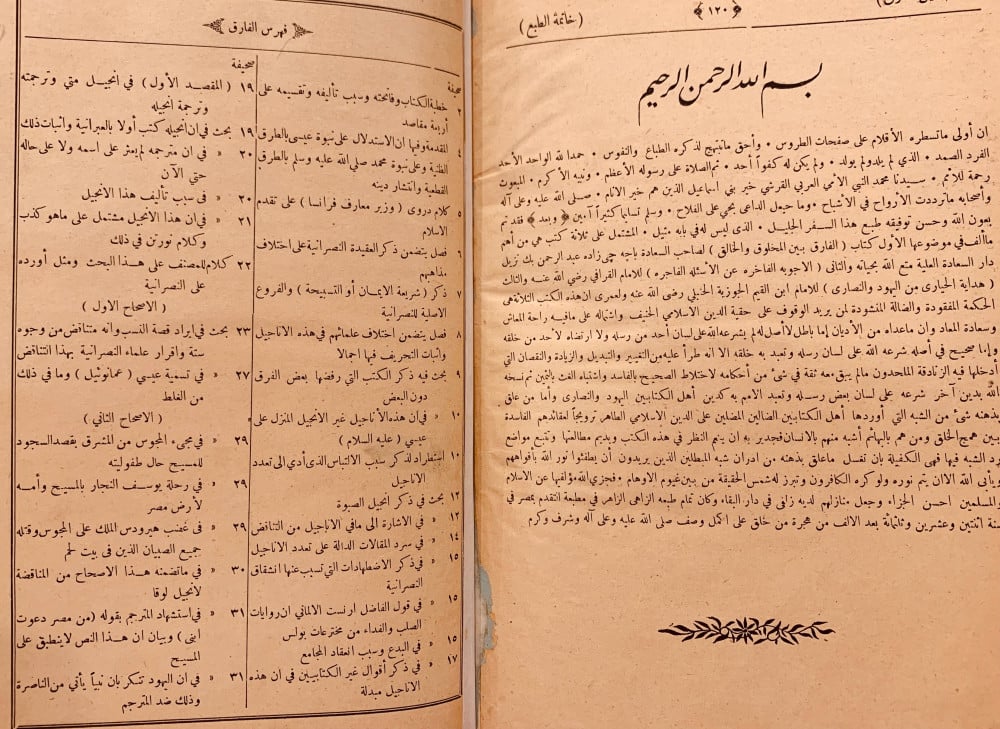 ﴿ ١٢٠ ﴾
(خاتمة الطبع)
بسم الله الرحمن الرحيم
ان أولى ماتسطره الأقلام على صفحات الطروس • وأحق ماتبتهج لذكره الطباع والنفوس • حمدا لله الواحد الأحد
الفرد الصمد • الذي لم يلد ولم يولد • ولم يكن له كفوا أحد • ثم الصلاة على رسوله الأعظم • ونبيه الأكرم • المبعوث
رحمة للأمم • سيدنا محمد النبي الأمي العربي القرشي خير بني اسماعيل الذين هم خير الانام • صلى الله عليه وعلى آله
وأصحابه ماترددت الأرواح في الأشباح • وما حيعل الداعي بحي على الفلاح • وسلم تسليما كثيرا آمين ﴿ وبعد ﴾ فقد تم
بعون الله وحسن توفيقه طبع هذا السفر الجليل • الذي ليس له في بابه مثيل • المشتمل على ثلاثة كتب هي من أهم
ماألف في موضوعها الأول كتاب (الفارق بين المخلوق والخالق) لصاحب السعادة باجه جي زاده عبد الرحمن بك نزيل
دار السعادة العلية متع الله بحياته والثاني (الاجوبه الفاخره عن الأسئله الفاجره) للامام القرافي رضي الله عنه والثالث
(هداية الحيارى من اليهود والنصارى) للامام ابن القيم الجوزية الحنبلي رضي الله عنه ولعمري ان هذه الكتب الثلاثة هي
الحكمة المفقودة والضالة المنشودة لمن يريد الوقوف على حقية الدين الاسلامي الحنيف واشتماله على مافيه راحة المعاش
وسعادة المعاد وان ماعداه من الأديان إما باطل لاأصل له لم يشرعه الله على لسان أحد من رسله ولا ارتضاه لاحد من خلقه
وإما صحيح في أصله شرعه الله على لسان رسله وتعبد به خلقه الا انه طرأ عليه من التغيير والتبديل والزيادة والنقصان التي
أدخلها فيه الزنادقة الملحدون مالم يبق معه ثقة في شئ من أحكامه لاختلاط الصحيح بالفاسد واشتباه الغث بالثمين ثم نسخه
الله بدين آخر شرعه على لسان بعض رسله وتعبد الامم به كدين أهل الكتابين اليهود والنصارى وأما من علق
بذهنه شئ من الشبه التي أوردها أهل الكتابين الضالين المضلين على الدين الاسلامي الطاهر ترويجا لعقائدهم الفاسدة
بين همج الخلق ومن هم بالبهائم أشبه منهم بالانسان فجدير به ان ينعم النظر في هذه الكتب ويديم مطالعتها وتتبع مواضع
رد الشبه فيها فهي الكفيلة بان تغسل ماعلق بذهنه من ادران شبه المبطلين الذين يريدون أن يطفئوا نور الله بأفواههم
ويأبى الله الا ان يتم نوره ولو كره الكافرون وتبرز له شمس الحقيقة من بين غيوم الاوهام • فجزى الله مؤلفيها عن الاسلام
والمسلمين احسن الجزاء وجعل منازلهم لديه زلفى في دار البقاء وكان تمام طبعه الزاهي الزاهر في مطبعة التقدم بمصر في
سنة اثنتين وعشرين وثلثمائة بعد الالف من هجرة من خلق على اكمل وصف صلى الله عليه وعلى آله وشرف وكرم
فهرس الفارق
صحيفة
٢ خطبة الكتاب وفاتحته وسبب تأليفه وتقسيمه على
أربعة مقاصد
٤ المقدمة وفيها ان الاستدلال على نبوة عيسى بالطرق
الظنية وعلى نبوة محمد صلى الله عليه وسلم بالطرق
القطعية وانتشار دينه
٥ كلام دروى (وزير معارف فرانسا) على تقدم
الاسلام
٦ فصل يتضمن ذكر العقيدة النصرانية على اختلاف
مذاهبهم
٧ ذكر (شريعة الايمان أو التسبيحة) والفروع
الاصلية للنصرانية
٨ فصل يتضمن اختلاف علمائهم في هذه الاناجيل
واثبات التحريف فيها اجمالا
٩ بحث فيه ذكر الكتب التي رفضها بعض الفرق
دون البعض
١٠ « في ان هذه الأناجيل غير الانجيل المنزل على
عيسى (عليه السلام)
١٠ استطراد لذكر سبب الالتباس الذي أدى الى تعدد
الاناجيل
١٢ بحث في ذكر انجيل الصبوة
١٢ « في الاشارة الى مافي الاناجيل من التناقض
١٤ « في سرد المقالات الدالة على تعدد الاناجيل
١٥ « في ذكر الاضطهادات التي تسبب عنها انشقاق
النصرانية
١٥ « في قول الفاضل ارنست الالماني ان روايات
الصلب والفداء من مخترعات بولس
١٥ « في البدع وسبب انعقاد المجامع
١٧ « في ذكر أقوال غير الكتابيين في ان هذه
الاناجيل مبدلة
صحيفة
١٩ (المقصد الأول) في انجيل متي وترجمته
وترجمة انجيله
١٩ بحث في ان انجيله كتب أولا بالعبرانية واثبات ذلك
٢٠ « في ان مترجمه لم يعثر على اسمه ولا على حاله
حتي الآن
٢٠ « في سبب تأليف هذا الانجيل
٢١ « في ان هذا الانجيل مشتمل على ماهو كذب
وكلام نورتن في ذلك
٢٢ كلام للمصنف على هذا البحث ومثل أورده
على النصرانية
(الاصحاح الاول)
٢٣ بحث في ايراد قصة النسب وانه متناقض من وجوه
ستة واقرار علماء النصرانية بهذا التناقض
٢٧ « في تسمية عيسى (عمانوئيل) وما في ذلك
من الغلط
(الاصحاح الثاني)
٢٩ « في مجيء المجوس من المشرق بقصد السجود
للمسيح حال طفوليته
٢٩ « في رحلة يوسف النجار بالمسيح وأمه
لأرض مصر
٢٩ « في غضب هيرودس الملك على المجوس وقتله
جميع الصبيان الذين في بيت لحم
٣٠ « في ماتضمنه هذا الاصحاح من المناقضة
لانجيل لوقا
٣١ « في استشهاد المترجم بقوله (من مصر دعوت
ابني) وبيان ان هذا النص لاينطبق على
المسيح
٣١ « في ان اليهود تنكر بان نبياً يأتي من الناصرة
وذلك ضد المترجم